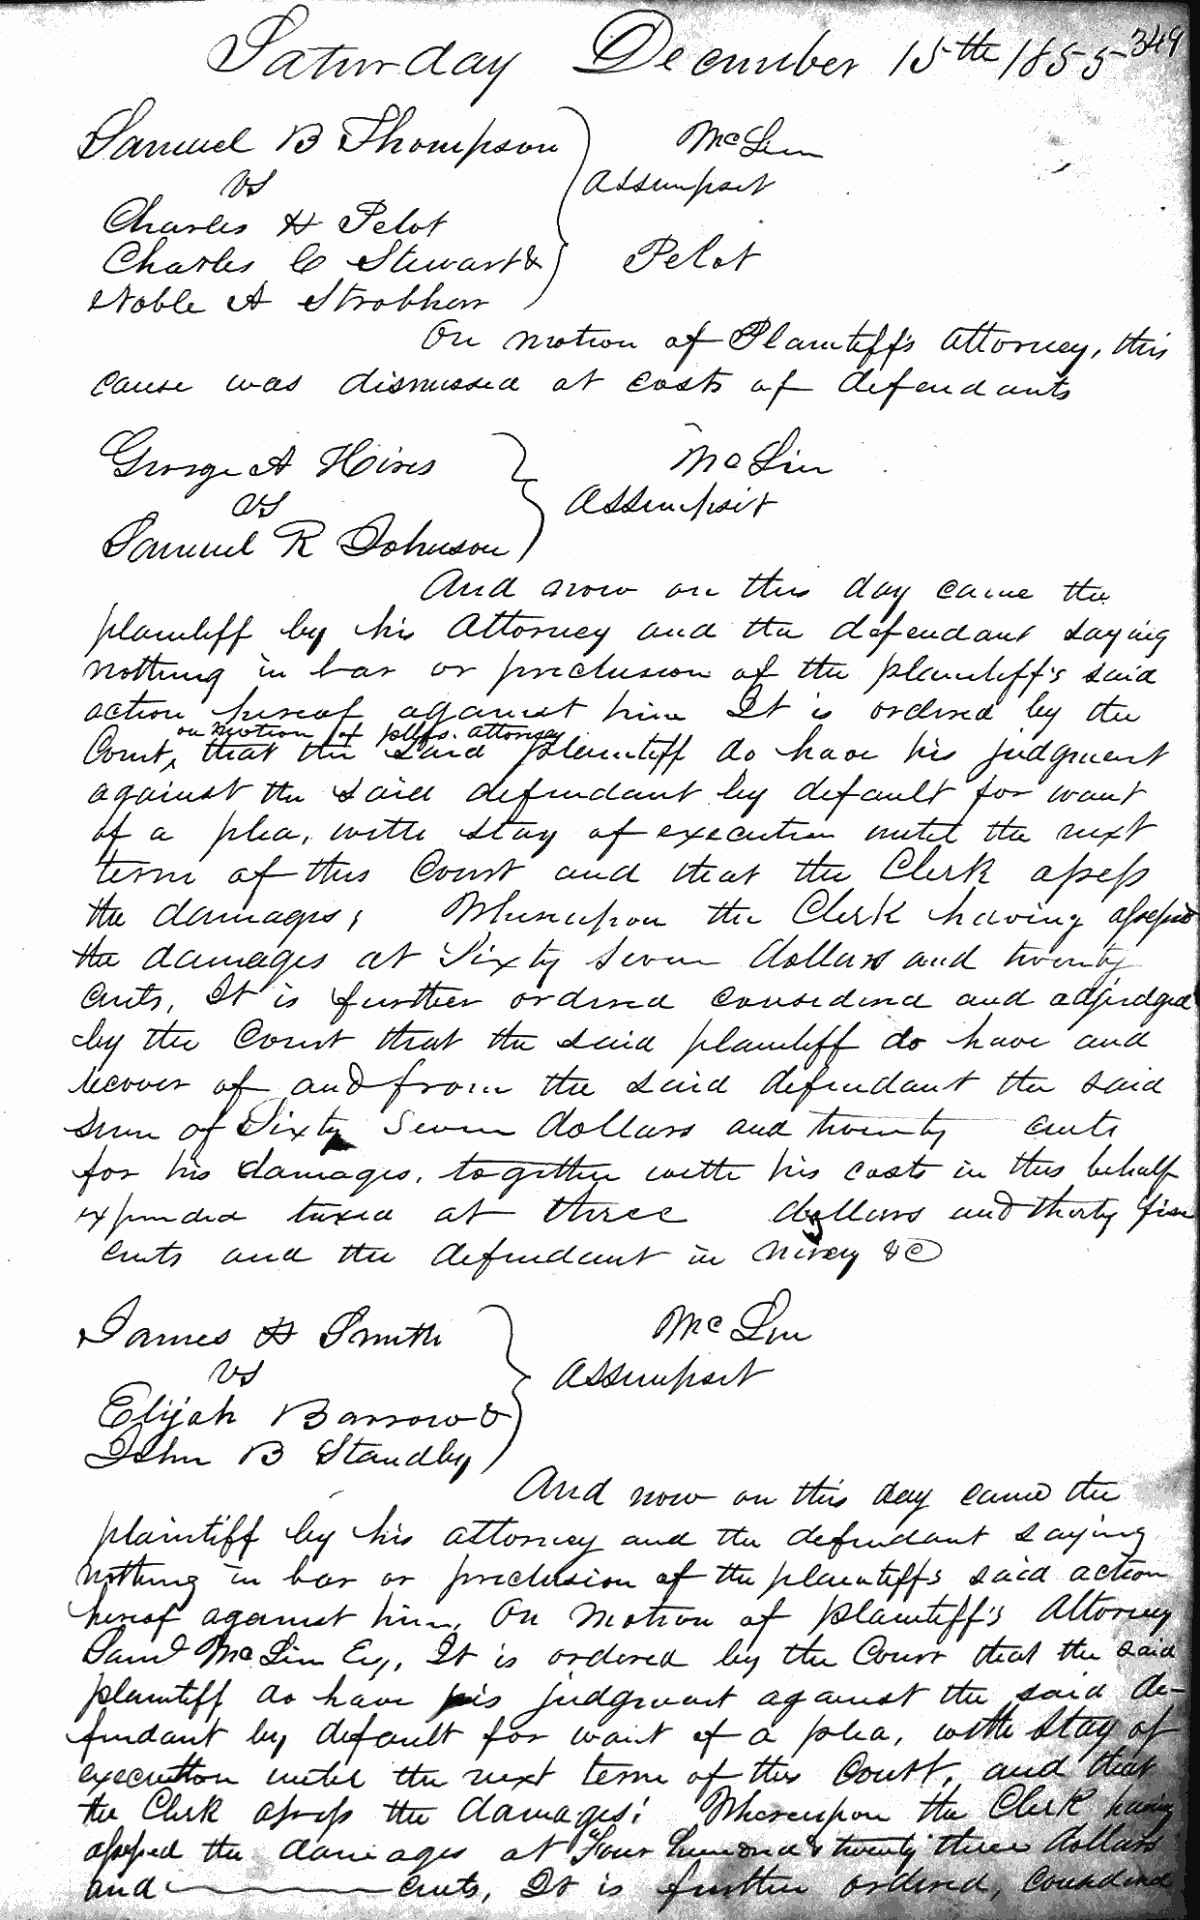 349
Saturday December 15th 1855
Samuel B Thompson McLin
vs Assumpsit
Charles H Pelot
Charles C Stewart & Pelot
Noble A
On motion of Plaintiff's Attorney, this
cause was dismissed at costs of defendants
George A Hires McLin
vs Assumpsit
Samuel R Johnson
And now on this day came the
plaintiff by his Attorney and the defendant saying
nothing in bar or preclusion of the plaintiff's said
action hereof against him It is ordered by the
on motion of pltfs. attorney
Court, that the said plaintiff do have his judgment
against the said defendant by default for want
of a plea, with stay of execution until the next
term of this Court and that the Clerk assess
the damages; Whereupon the Clerk having assessed
the damages at Sixty Seven dollars and twenty
cents, It is further ordered considered and adjudged
by the Court that the said plaintiff do have and
recover of and from the said defendant the said
sum of Sixty Seven dollars and twenty cents
for his damages, together with his costs in this behalf
expended taxed at three dollars and thirty five
cents and the defendant in mercy &c
James H Smith McLin
vs Assumpsit
Elijah Barrow &
John B Standley
And now on this day came the
plaintiff by his attorney and the defendant saying
nothing in bar or preclusion of the plaintiff's said action
hereof against him, On motion of plaintiff's Attorney
Saml McLin Esq, It is ordered by the Court that the said
plaintiff do have his judgment against the said de-
fendant by default for want of a plea, with stay of
execution until the next term of this Court, and that
the Clerk assess the damages; Whereupon the Clerk having
assessed the damages at Four hundred & twenty three dollars
and ——— cents, It is further ordered, considered